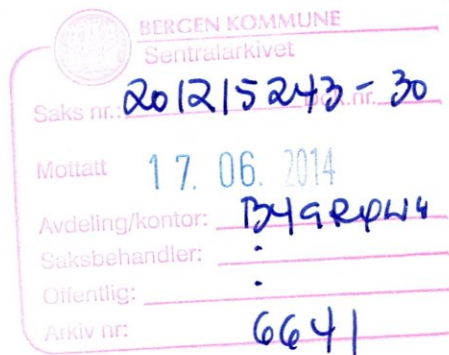 BERGEN KOMMUNE
Sentralarkivet
Saks nr.: 201215243-30 Dok.nr.
Mottatt 17. 06. 2014
Avdeling/kontor:
Saksbehandler:
Offentlig:
Arkiv nr: 6641